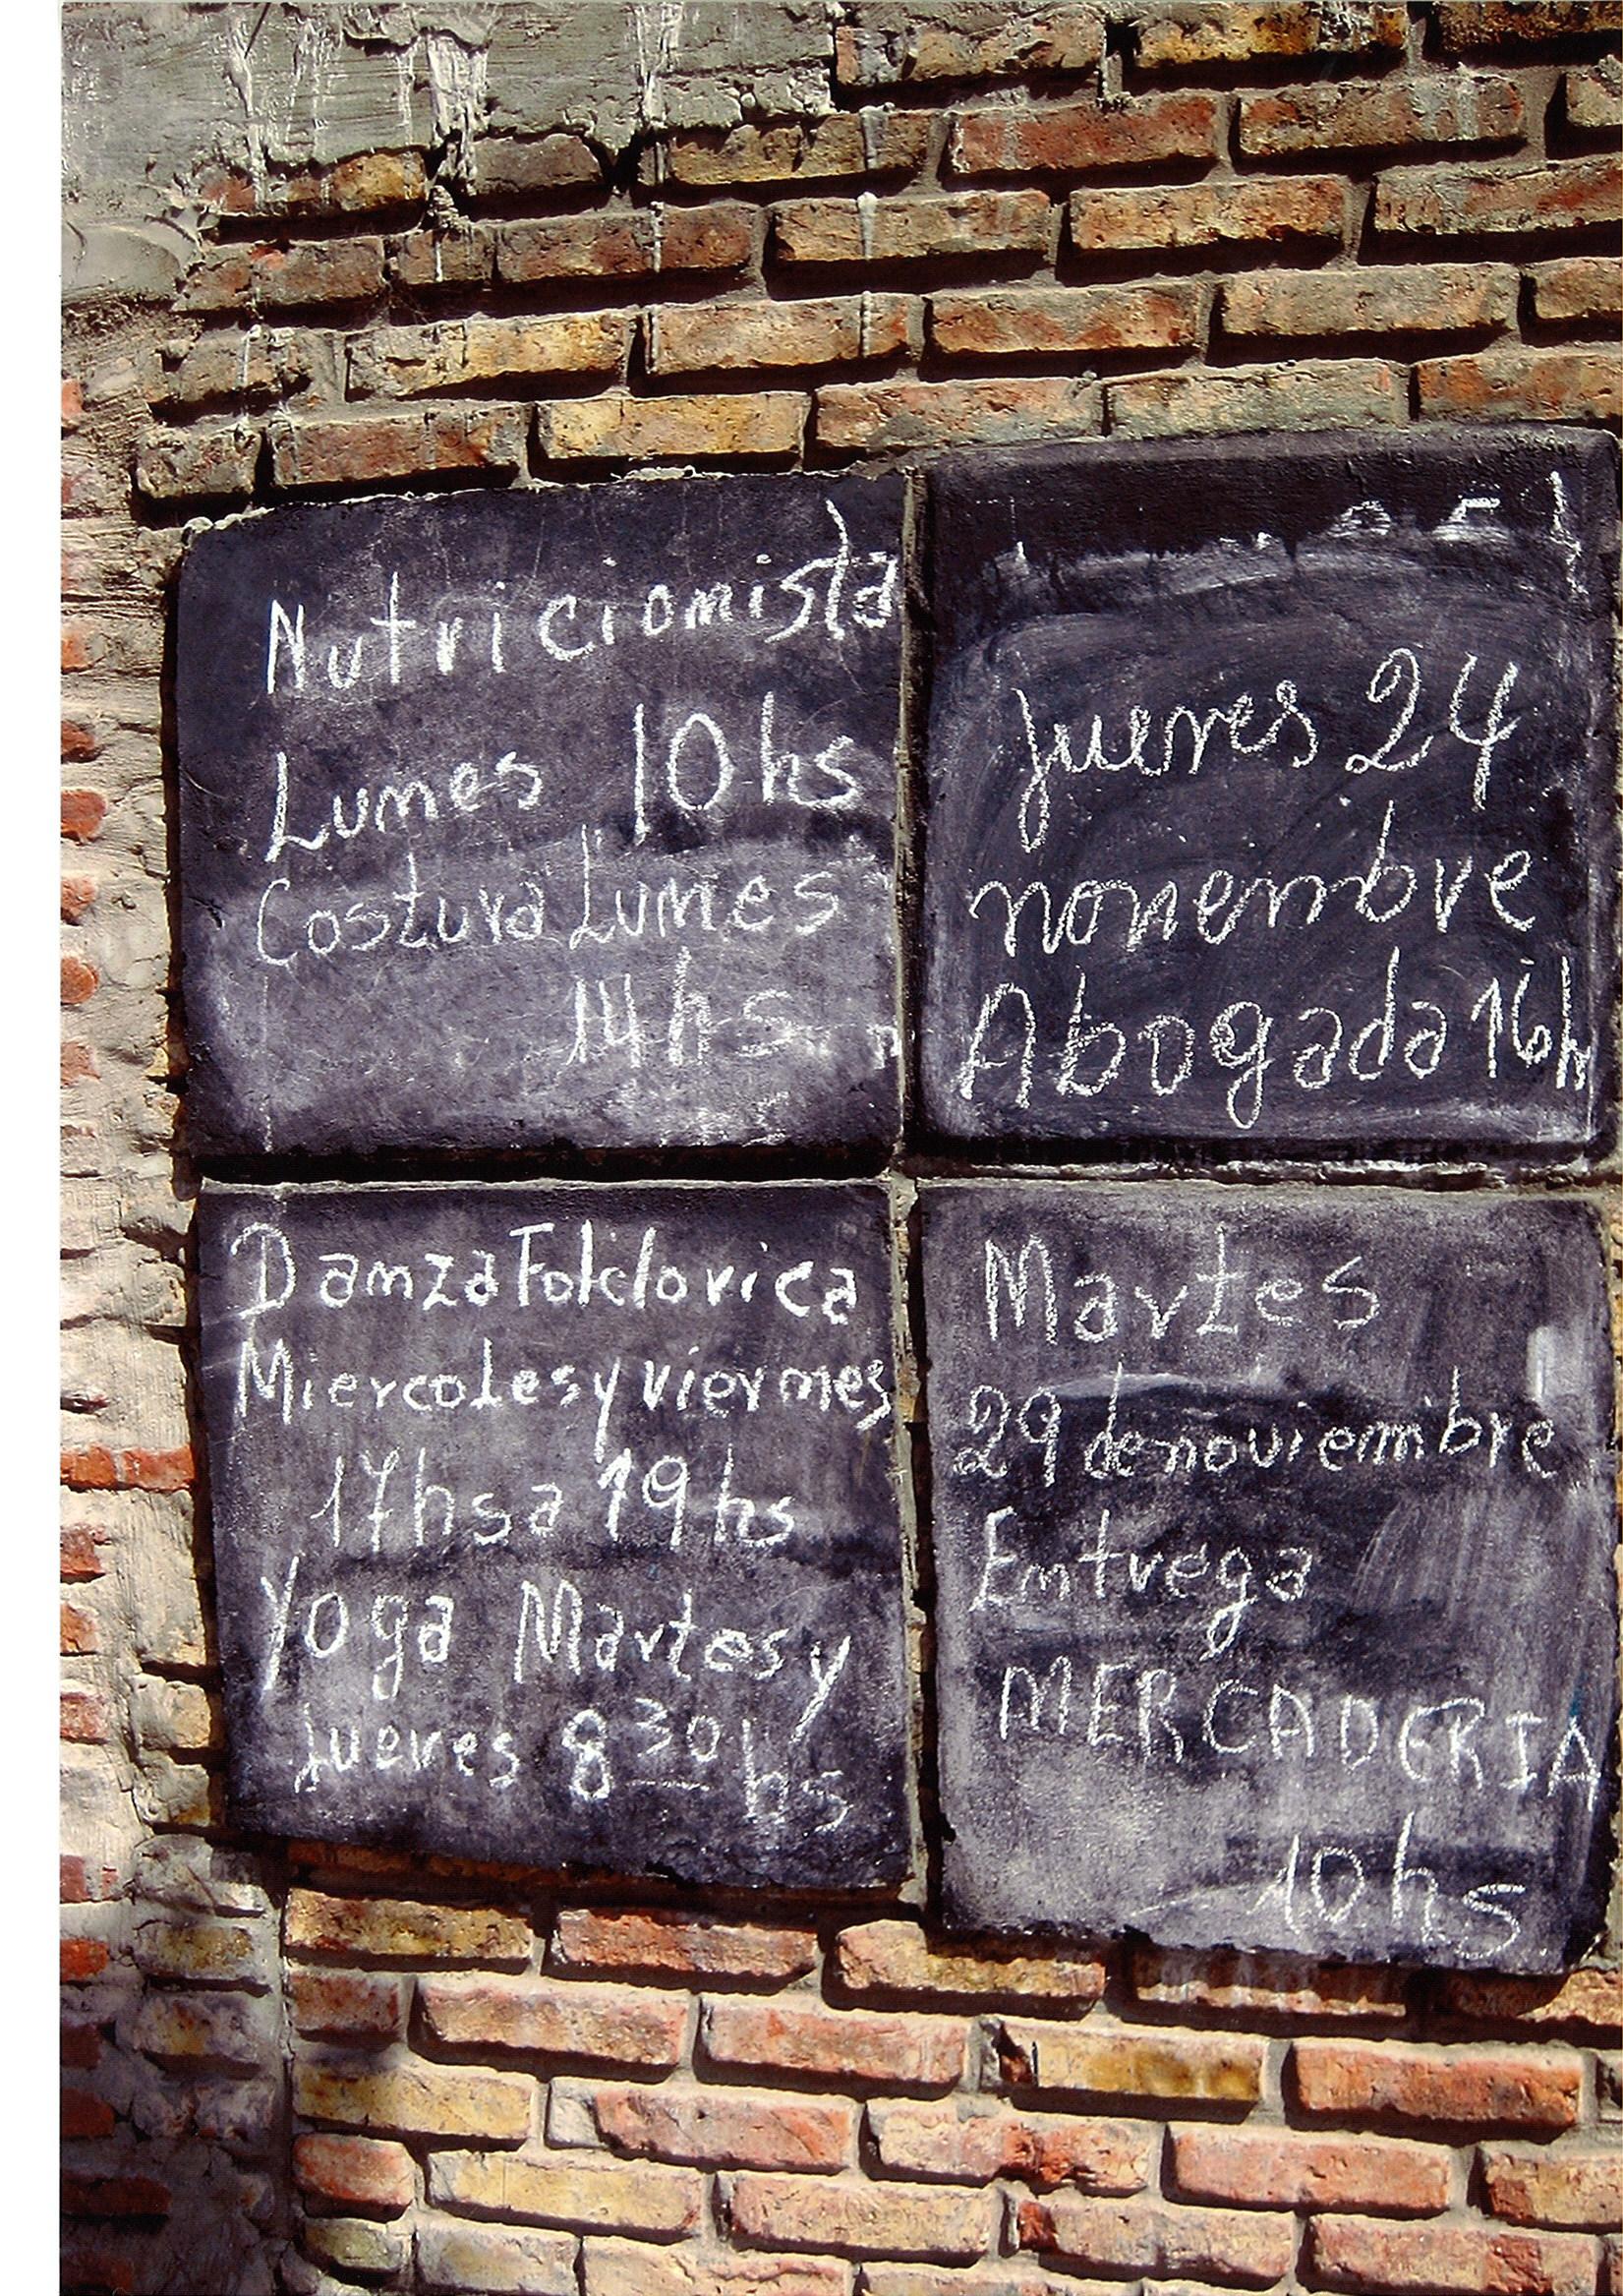 Nutricionista
Lunes 10hs
Costura Lunes
14hs
Jueves 24
novembre
Abogada 16h
Danza Folclorica
Miercoles y viernes
17hs a 19hs
Yoga Martes y
Jueves 8 30 hs
Martes
29 de noviembre
Entrega
MERCADERIA
10hs